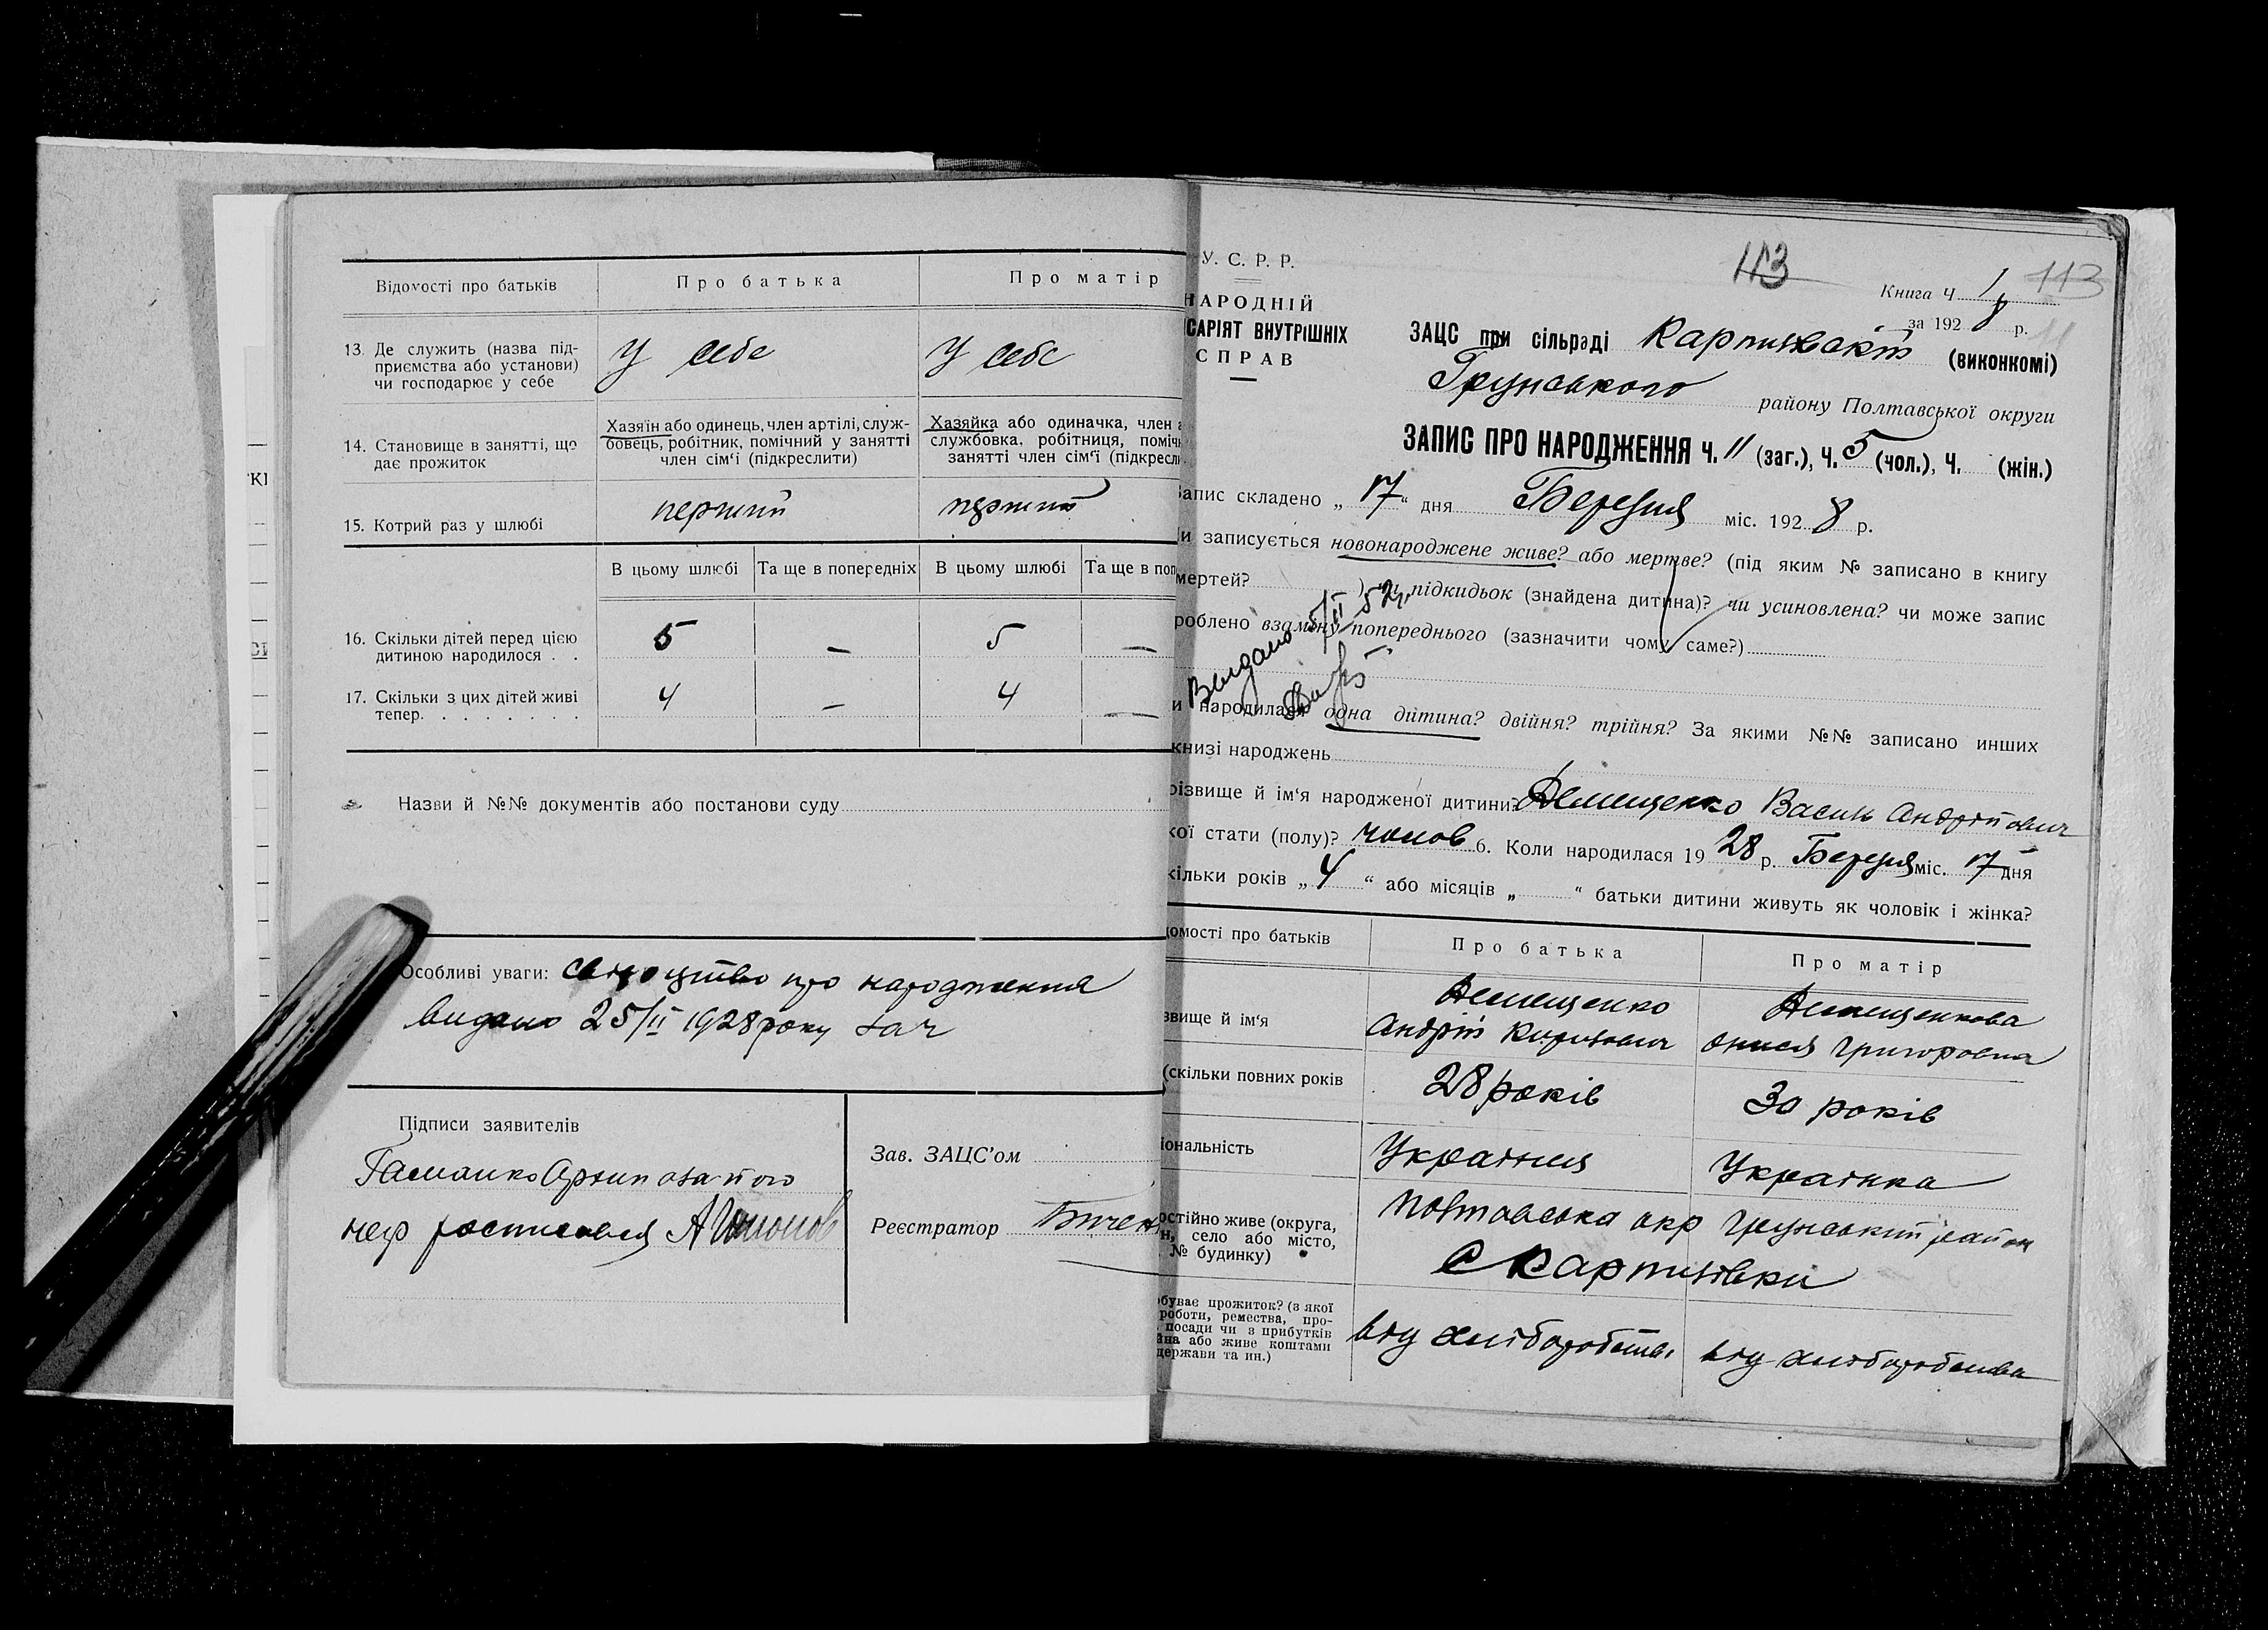 Відомості про батьків
Про батька
Про матір
13. Де служить (назва під-
приємства або установи)
чи господарює у себе
У себе
У себе
14. Становище в занятті, що
дає прожиток
Хазяїн або одинець, член артілі, служ-
бовець, робітник, помічний у занятті
член сім'ї (підкреслити)
Хазяйка або одиначка, член
службовка, робітниця, поміч
занятті член сім'ї (підкресл
15. Котрий раз у шлюбі
перший
перший
В цьому шлюбі
Та ще в попередніх
В цьому шлюбі
Та ще в поп
16. Скільки дітей перед цією
дитиною народилося . .
5
—
5
—
17. Скільки з цих дітей живі
тепер. . . . . . . .
4
—
4
—
Назви й №№ документів або постанови суду
Особливі уваги: про народження
видано 25/II 1928 року
Підписи заявителів
Зав. ЗАЦС'ом
Реєстратор
У. С. Р. Р.
НАРОДНІЙ
САРІЯТ ВНУТРІШНІХ
СПРАВ
113
113
Книга ч 1
за 1928 р.
ЗАЦС при сільраді (виконкомі)
Грунського району Полтавської округи
ЗАПИС ПРО НАРОДЖЕННЯ Ч. 11 (заг.), Ч. 5 (чол.), Ч. (жін.)
Запис складено „ 17 “ дня Березня міс. 1928 р.
и записується новонароджене живе? або мертве? (під яким № записано в книгу
мертей? ) чи підкидьок (знайдена дитина)? чи усиновлена? чи може запис
роблено взаміну попереднього (зазначити чому саме?)
Выдано 5/II 52
и народилася одна дитина? двійня? трійня? За якими №№ записано инших
книзі народжень
різвище й ім'я народженої дитини? Демещенко Василь Андрійович
кої стати (полу)? чолов 6. Коли народилася 1928 р. Березня міс. 17 дня
кільки років „ 4 “ або місяців „ “ батьки дитини живуть як чоловік і жінка?
домості про батьків
Про батька
Про матір
звище й ім'я
Демещенко
Андрій
Демещенкова
Григоровна
(скільки повних років
28 років
30 років
іональність
Українця
Українка
остійно живе (округа,
н, село або місто,
№ будинку)
Полтавська окр Грунський район
обуває прожиток? (з якої
роботи, ремества, про-
посади чи з прибутків
йна або живе коштами
держави та ин.)
від хліборобства
від хліборобства